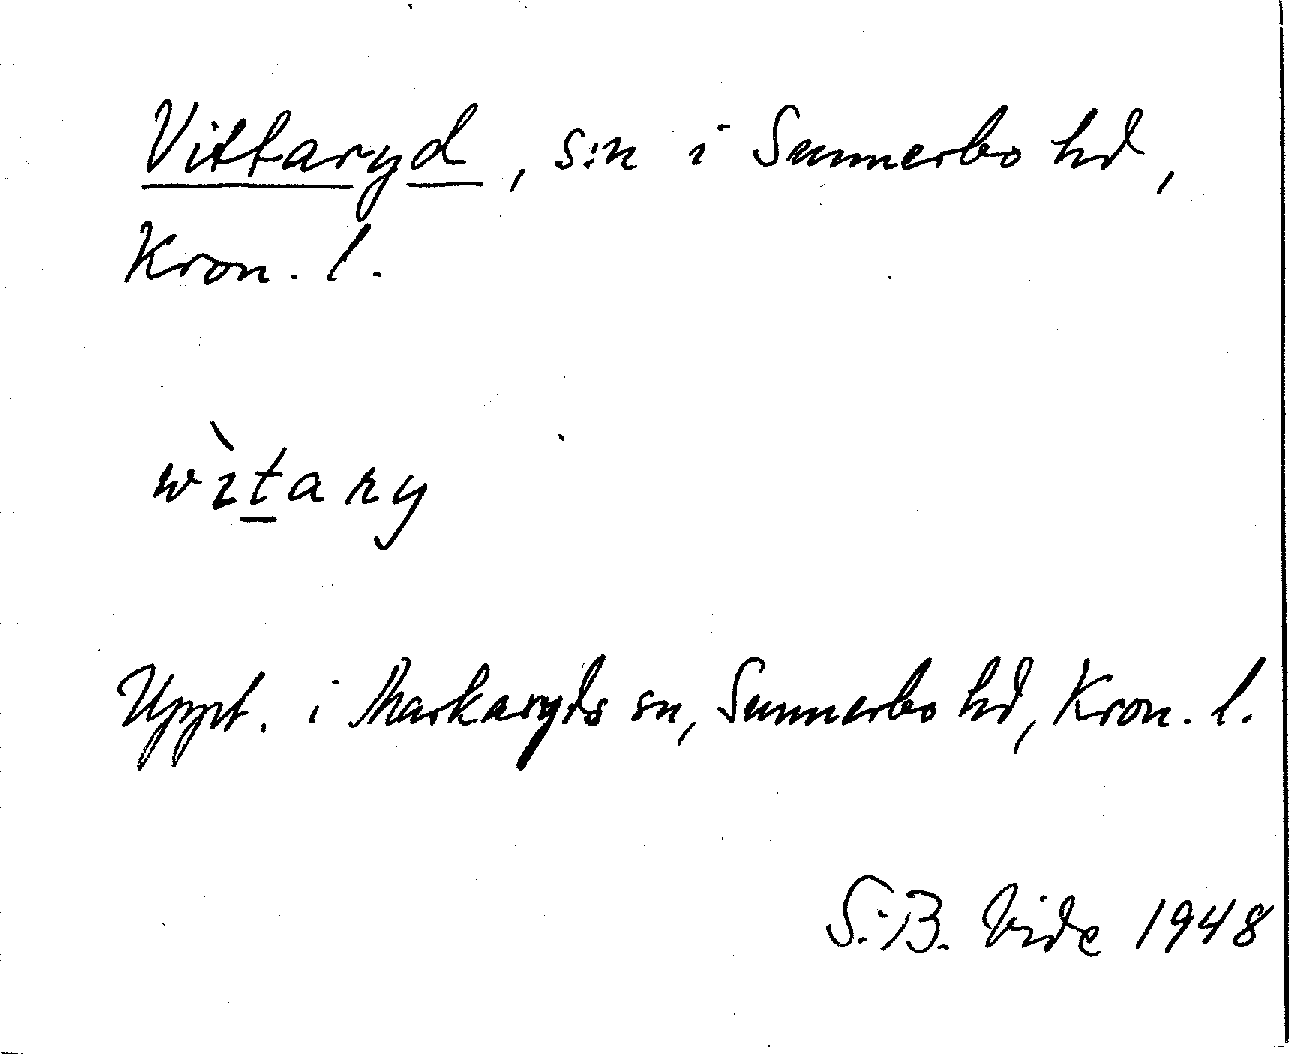 Vittaryd, s:n i Sunnerbo hd,
Kron. l.
wìtary
Uppt. i Markaryds sn, Sunnerbo hd, Kron. l.
S.B. Vide 1948